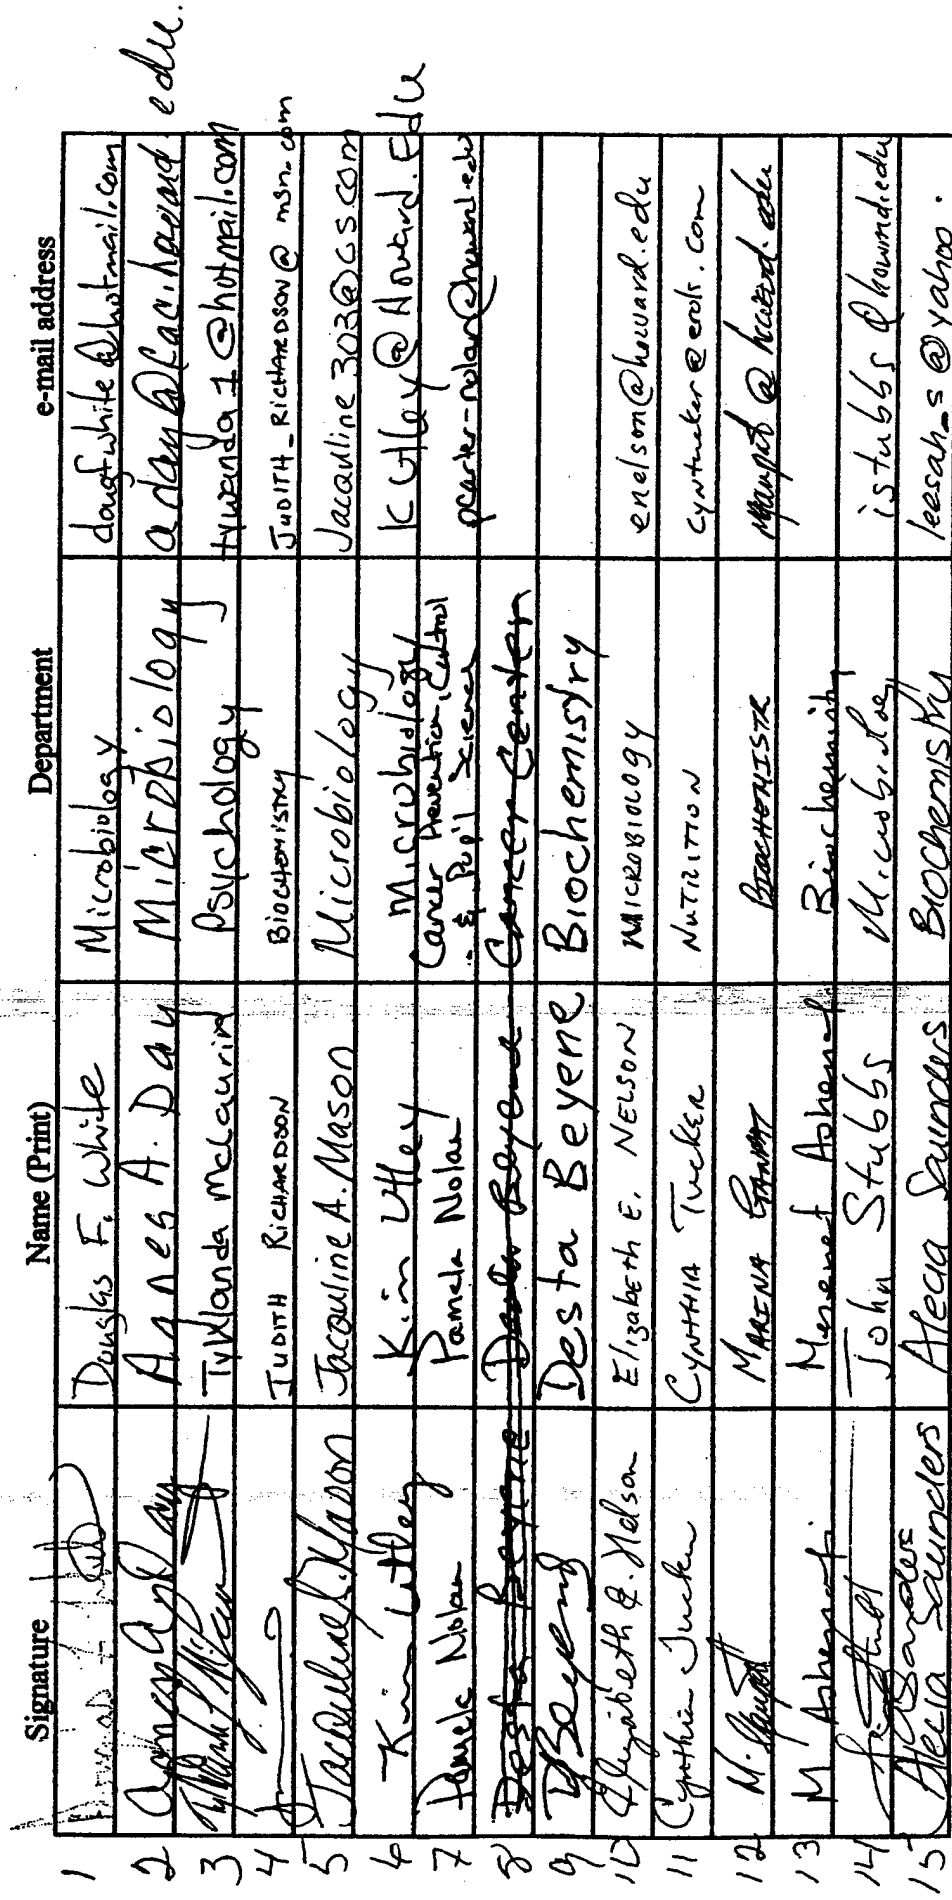 Signature Name (Print) Department e-mail address
1 Douglas F. White Microbiology dougfwhite@hotmail.com
2 Agnes A. Day Microbiology aday@fac.howard.edu.
3 TyWanda McLaurin Psychology tywanda1@hotmail.com
4 JUDITH RICHARDSON BIOCHEMISTRY JUDITH_RICHARDSON@msn.com
5 Jacquline A. Mason Jacquline A. Mason Microbiology Jacquline303@cs.com
6 Kim Uttley Kim Uttley Microbiology KUttley@Howard.Edu
7 Pamela Nolan Pamela Nolan Cancer Prevention, Control
& Pop'l Science pcarter-nolan@howard.edu
8 Desta Beyene Desta Beyene Cancer Center
9 DBeyene Desta Beyene Biochemistry
10 Elizabeth E. Nelson Elizabeth E. NELSON MICROBIOLOGY enelson@howard.edu
11 Cynthia Tucker CYNTHIA TUCKER NUTRITION cyntucker@erols.com
12 MARINA BIOCHEMISTR
13 M Ashenafi Ashenafi Biochemistry
14 John Stubbs Microbiology istubbs@howard.edu
15 Alecia Saunders Alecia Saunders Biochemistry leesah_s@yahoo.